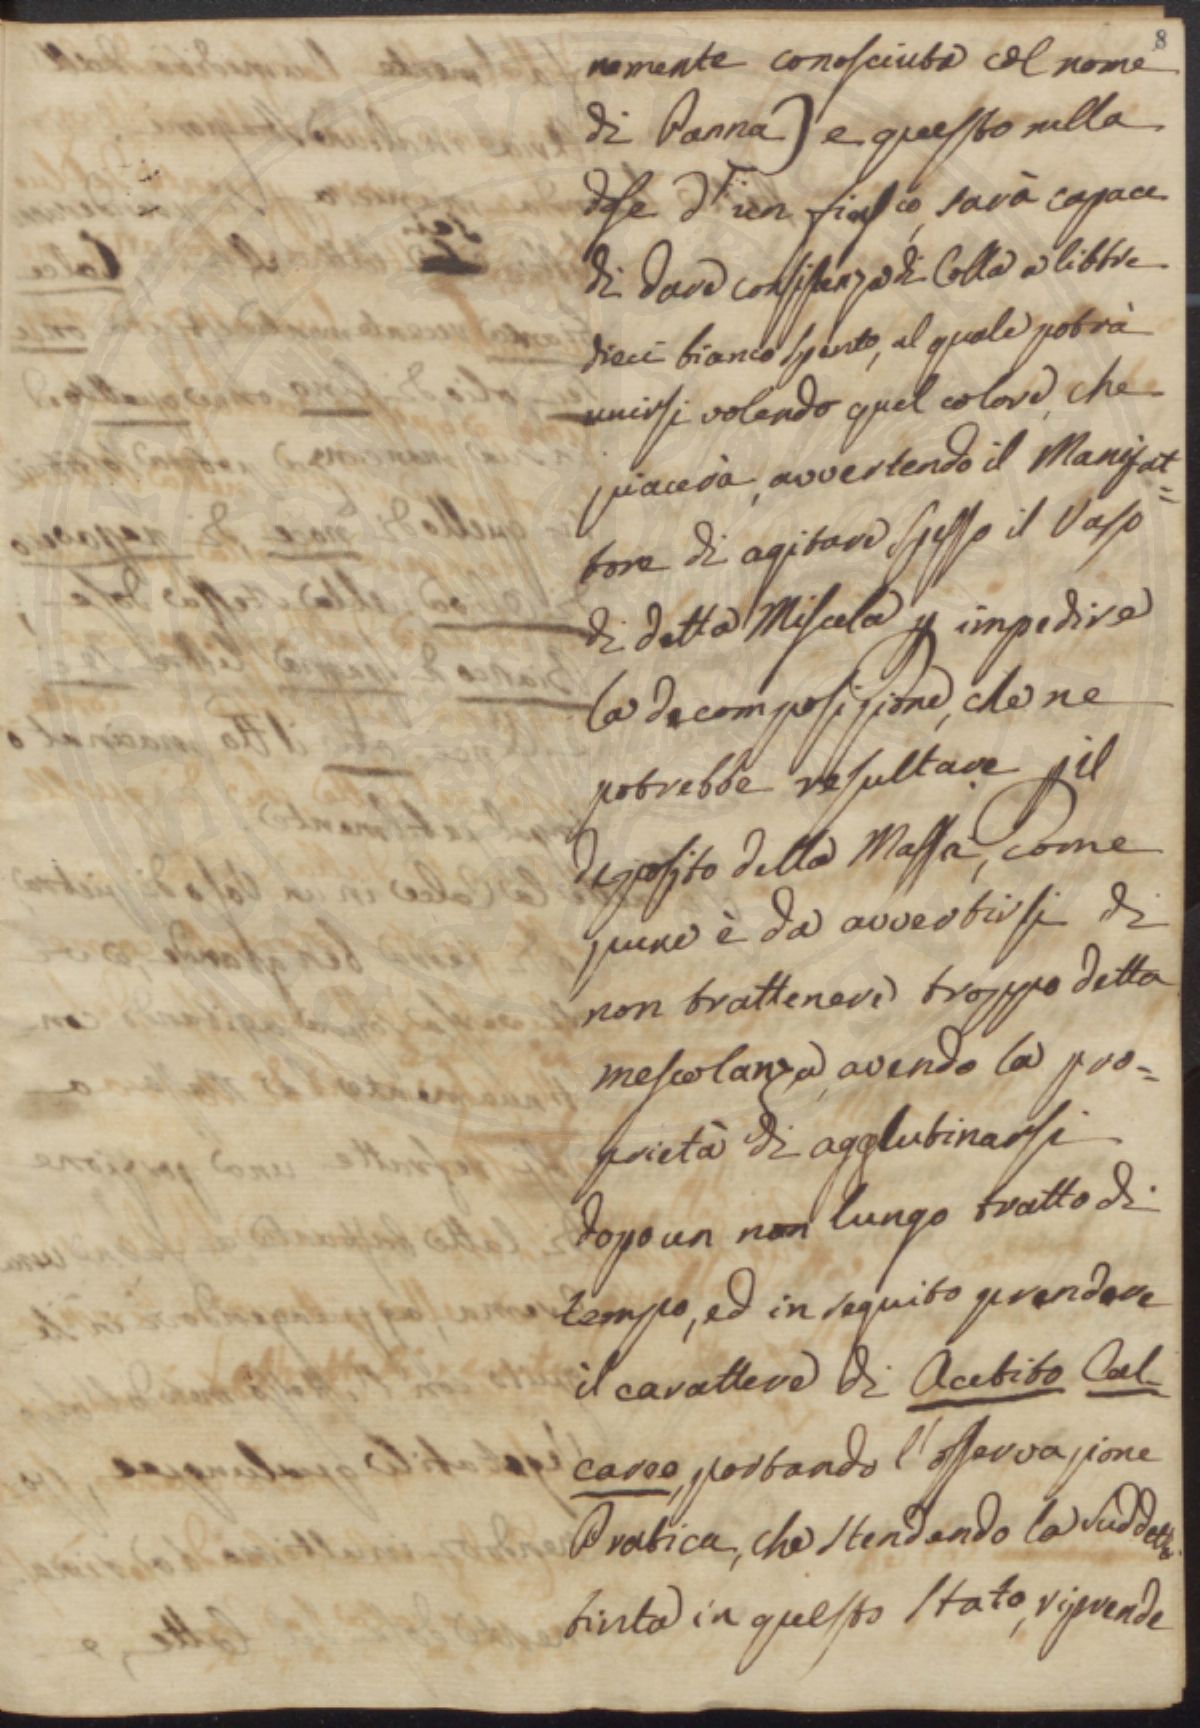 8
nemente conosciuta col nome
di Panna) e questo nella
dose d'un fiasco, sarà capace
di dare consistenza di Colla a libbre
dieci bianco spento, al quale potrà
unirsi volendo quel colore, che
piacerà, avvertendo il Manifat=
tore di agitare spesso il Vaso
di detta Miscela p impedire
la decomposizione, che ne
potrebbe resultare pil
deposito della Massa, Come
pure è da avvertirsi di
non trattenere troppo detta
mescolanza, avendo la pro=
prietà di agglutinarsi
dopo un non lungo tratto di
tempo, ed in seguito prendere
il carattere di Acetito Cal-
careo, portando l'osservazione
Pratica, che stendendo la suddetta
tinta in questo stato, riprende